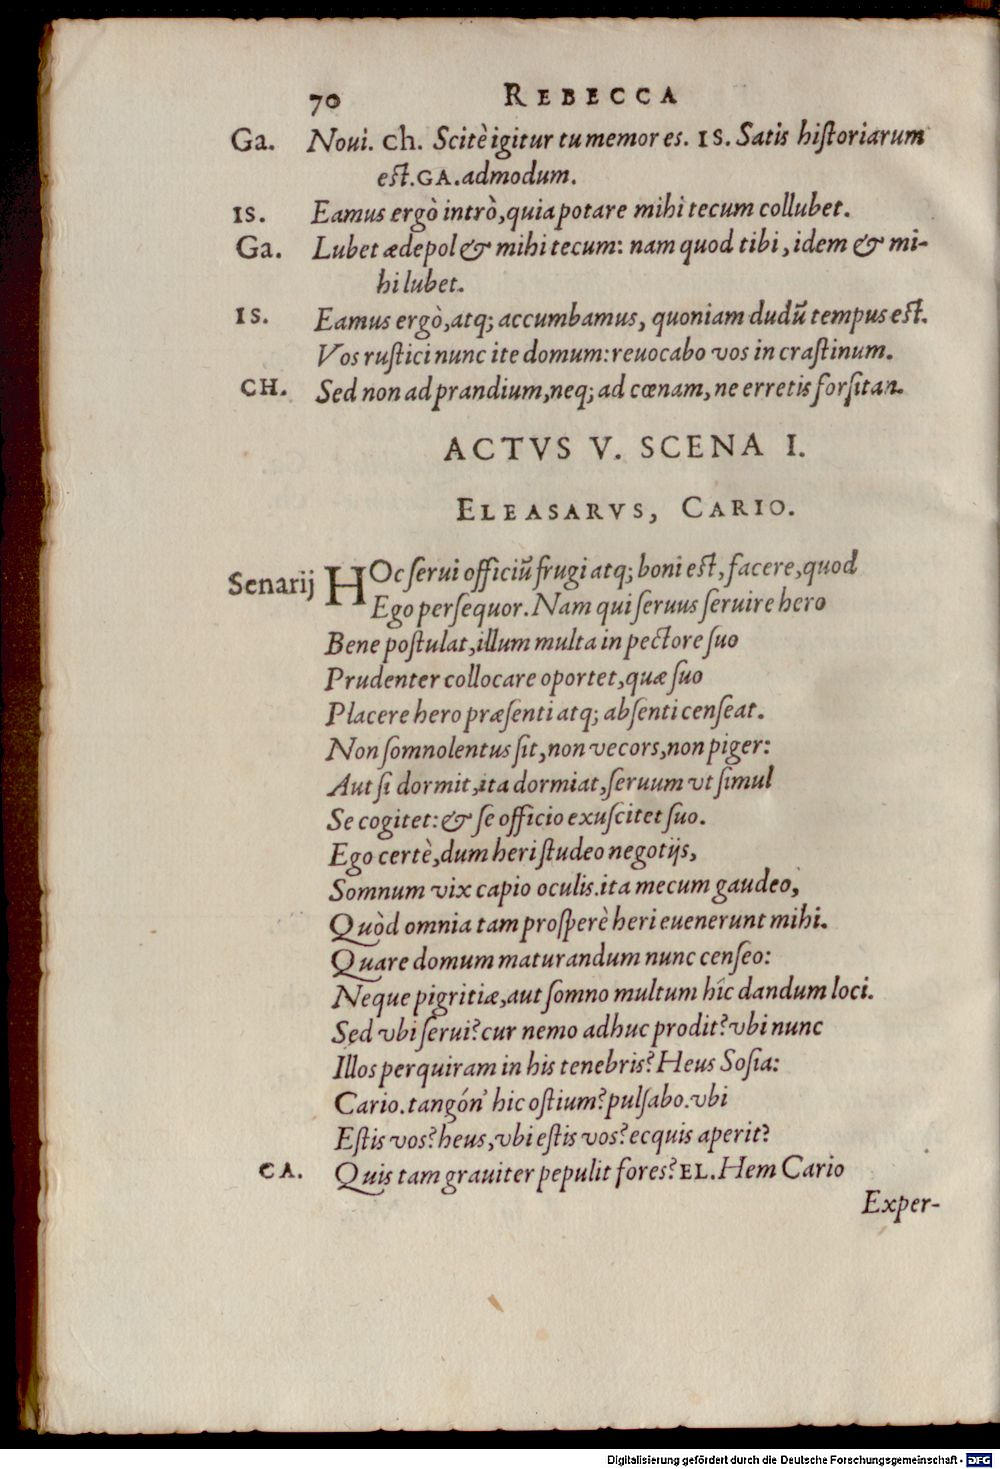 70 REBECCA
Ga. Noui. Ch. Scitè igitur tu memor es. IS. Satis hiſtoriarum
eſt. GA. admodum.
IS. Eamus ergò intrò, quia potare mihi tecum collubet.
Ga. Lubet ædepol & mihi tecum: nam quod tibi, idem & mi-
hi lubet.
IS. Eamus ergò, atq; accumbamus, quoniam dudũ tempus eſt.
Vos ruſtici nunc ite domum: reuocabo vos in craſtinum.
CH. Sed non ad prandium, neq; ad cœnam, ne erretis forſitan.
ACTVS V. SCENA I.
ELEASARVS, CARIO.
Senarij HOc ſerui officiũ frugi atq; boni eſt, facere, quod
Ego perſequor. Nam qui ſeruus ſeruire hero
Bene poſtulat, illum multa in pectore ſuo
Prudenter collocare oportet, quæ ſuo
Placere hero præſenti atq; abſenti cenſeat.
Non ſomnolentus ſit, non vecors, non piger:
Aut ſi dormit, ita dormiat, ſeruum vt ſimul
Se cogitet: & ſe officio exuſcitet ſuo.
Ego certè, dum heri ſtudeo negotijs,
Somnum vix capio oculis. ita mecum gaudeo,
Quòd omnia tam proſperè heri euenerunt mihi.
Quare domum maturandum nunc cenſeo:
Neque pigritiæ, aut ſomno multum hîc dandum loci.
Sed vbi ſerui? cur nemo adhuc prodit? vbi nunc
Illos perquiram in his tenebris? Heus Soſia:
Cario. tangón' hic oſtium? pulſabo. vbi
Eſtis vos? heus, vbi eſtis vos? ecquis aperit?
CA. Quis tam grauiter pepulit fores? EL. Hem Cario
Exper-
Digitalisierung gefördert durch die Deutsche Forschungsgemeinschaft - DFG